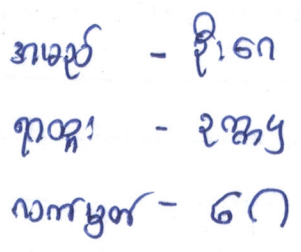 အမည် - ဦးဂေ
ရာထူး - ဥက္ကဌ
လက်မှတ် - ဂေ